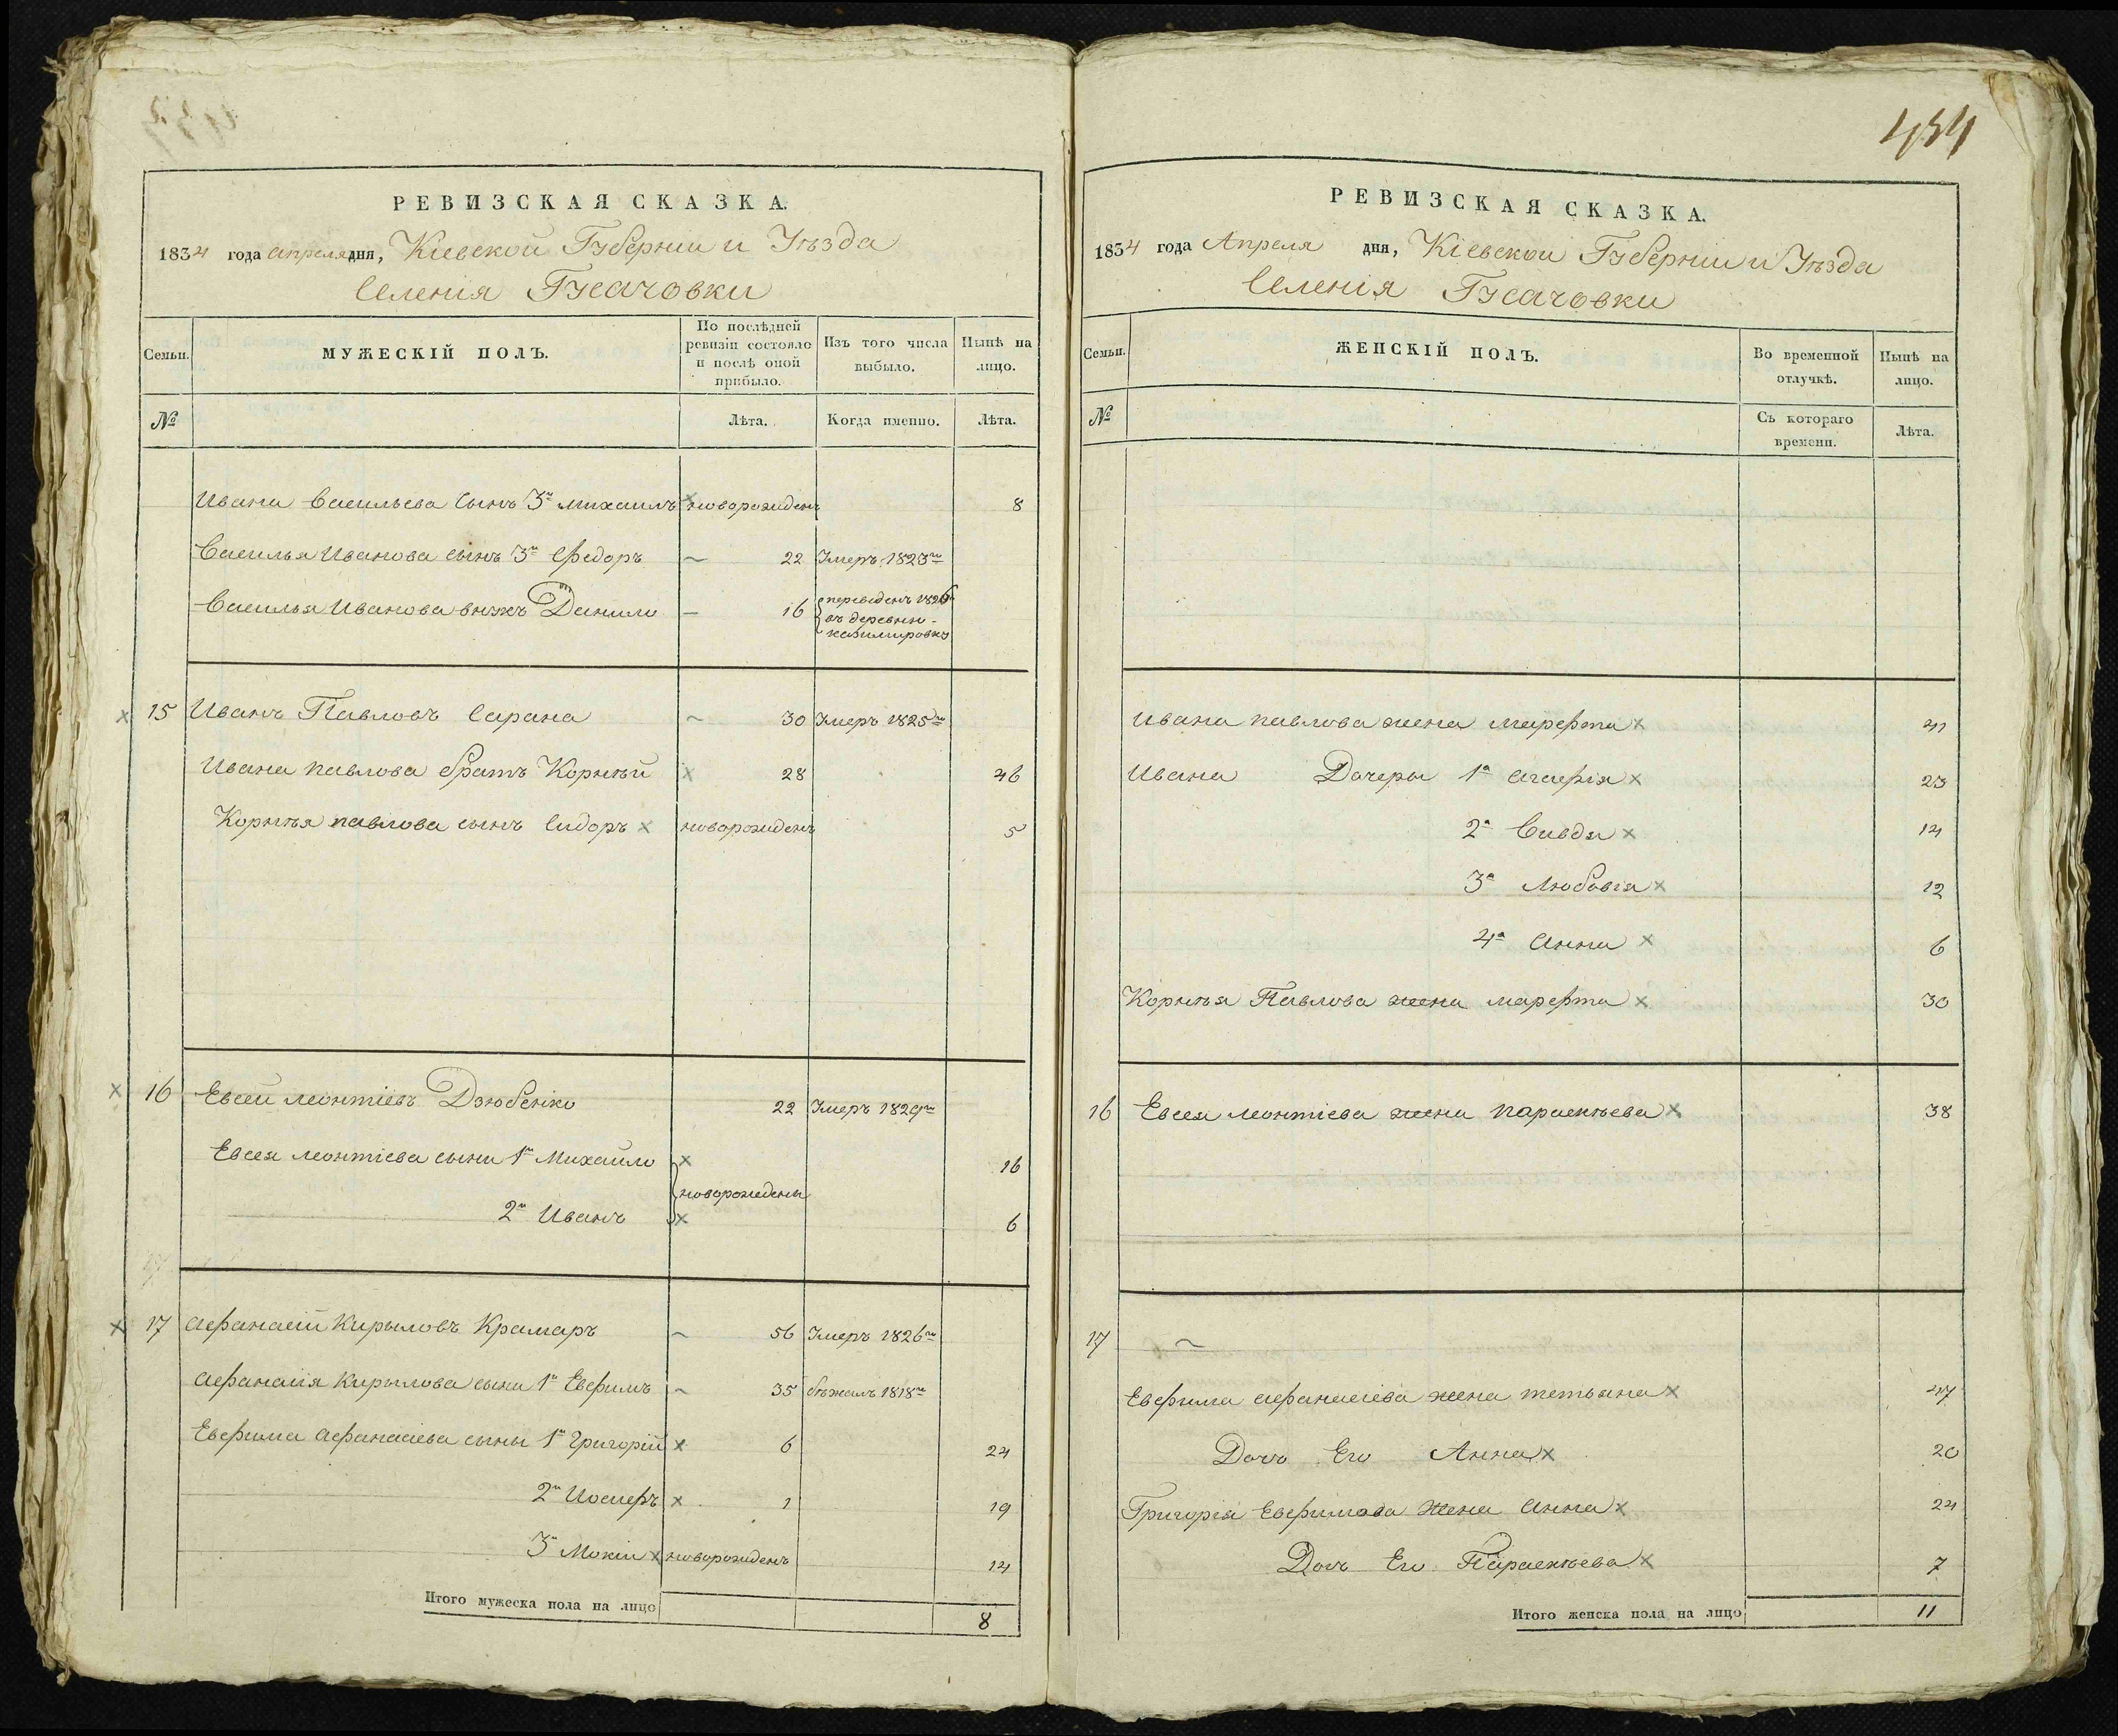 РЕВИЗСКАЯ СКАЗКА.
1834 года апреля дня, Кіевской Губерніи и Уѣзда
Селенія Гусачовки
Семьи.
МУЖЕСКІЙ ПОЛЪ.
По послѣдней ревизіи состояло и послѣ оной прибыло.
Изъ того числа выбыло.
Нынѣ на лицо.
№
Лѣта.
Когда именно.
Лѣта.
Ивана Васильева сынъ 3й Михаилъ новорожденъ 8
Василья Иванова сынъ 3й Федоръ 22 Умеръ 1823го
Василья Иванова внукъ Данило 16 переведенъ 1826
въ деревню
казимировку
15 Иванъ Павловъ Сарана 30 Умеръ 1825го
Ивана Павлова братъ Корнѣй 28 46
Корнѣя Павлова сынъ Сидоръ новорожденъ 5
16 Евсей Леонтіевъ Дзюбенко 22 Умеръ 1829го
Евсея Леонтіева сыны 1й Михайло 16
новорождены
2й Иванъ 6
17 Афанасій Кирыловъ Крамаръ 56 Умеръ 1826го
Афанасія Кирылова сыны 1й Евфимъ 35 бѣжалъ 1818го
Евфима Афанасіева сыны 1й Григорій 6 24
2й Иосифъ 1 19
3й Мокій новорожденъ 14
Итого мужеска пола на лицо 8
434
РЕВИЗСКАЯ СКАЗКА.
1834 года Апреля дня, Кіевской Губерніи и Уѣзда
Селенія Гусачовки
Семьи.
ЖЕНСКІЙ ПОЛЪ.
Во временной отлучкѣ.
Нынѣ на лицо.
№
Съ котораго времени.
Лѣта.
Ивана Павлова жена Марфта 41
Ивана Дочеры 1а Агафія 23
2а Явдя 14
3а Любовія 12
4а Анна 6
Корнѣя Павлова жена Марфта 30
16 Евсея Леонтіева жена Параскѣева 38
17
Евфима Афанасіева жена Тетьяна 47
Дочь Его Анна 20
Григорія Евфимова жена Анна 24
Дочь Его Параскѣева 7
Итого женска пола на лицо 11